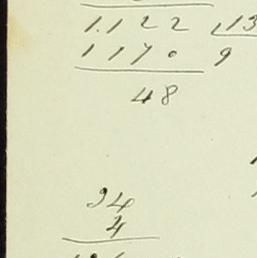 1.122 13
1170 9
48
34
4